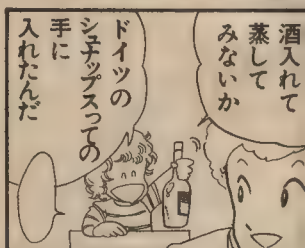 酒入れて
蒸して
みないか
ドイツの
シュナップスっての
手に
入れたんだ